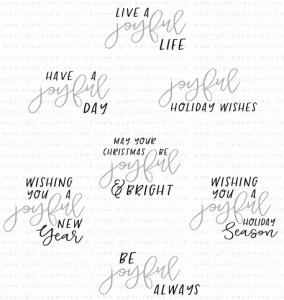 LIVE A
joyful
LIFE
HAVE A
joyful
DAY
joyful
HOLIDAY WISHES
MAY YOUR
CHRISTMAS BE
joyful
& BRIGHT
WISHING
YOU A
joyful
NEW
Year
WISHING
YOU A
joyful
HOLIDAY
Season
BE
joyful
ALWAYS